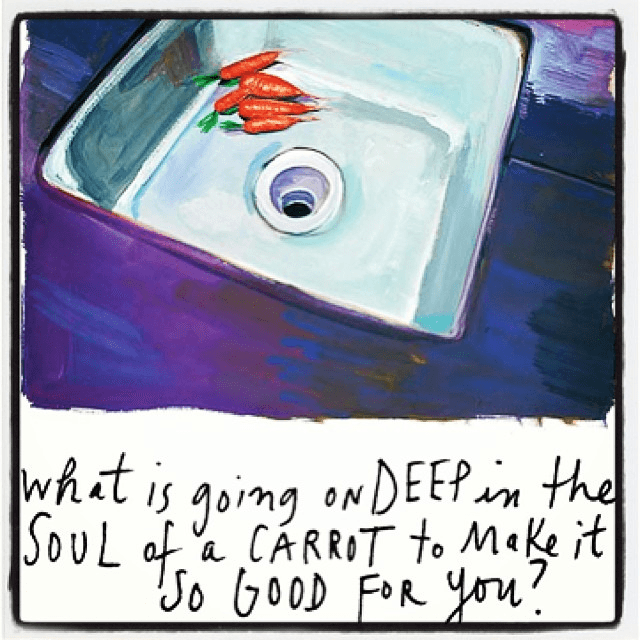 what is going on DEEP in the
SOUL of a CARROT to Make it
SO GOOD FOR you?